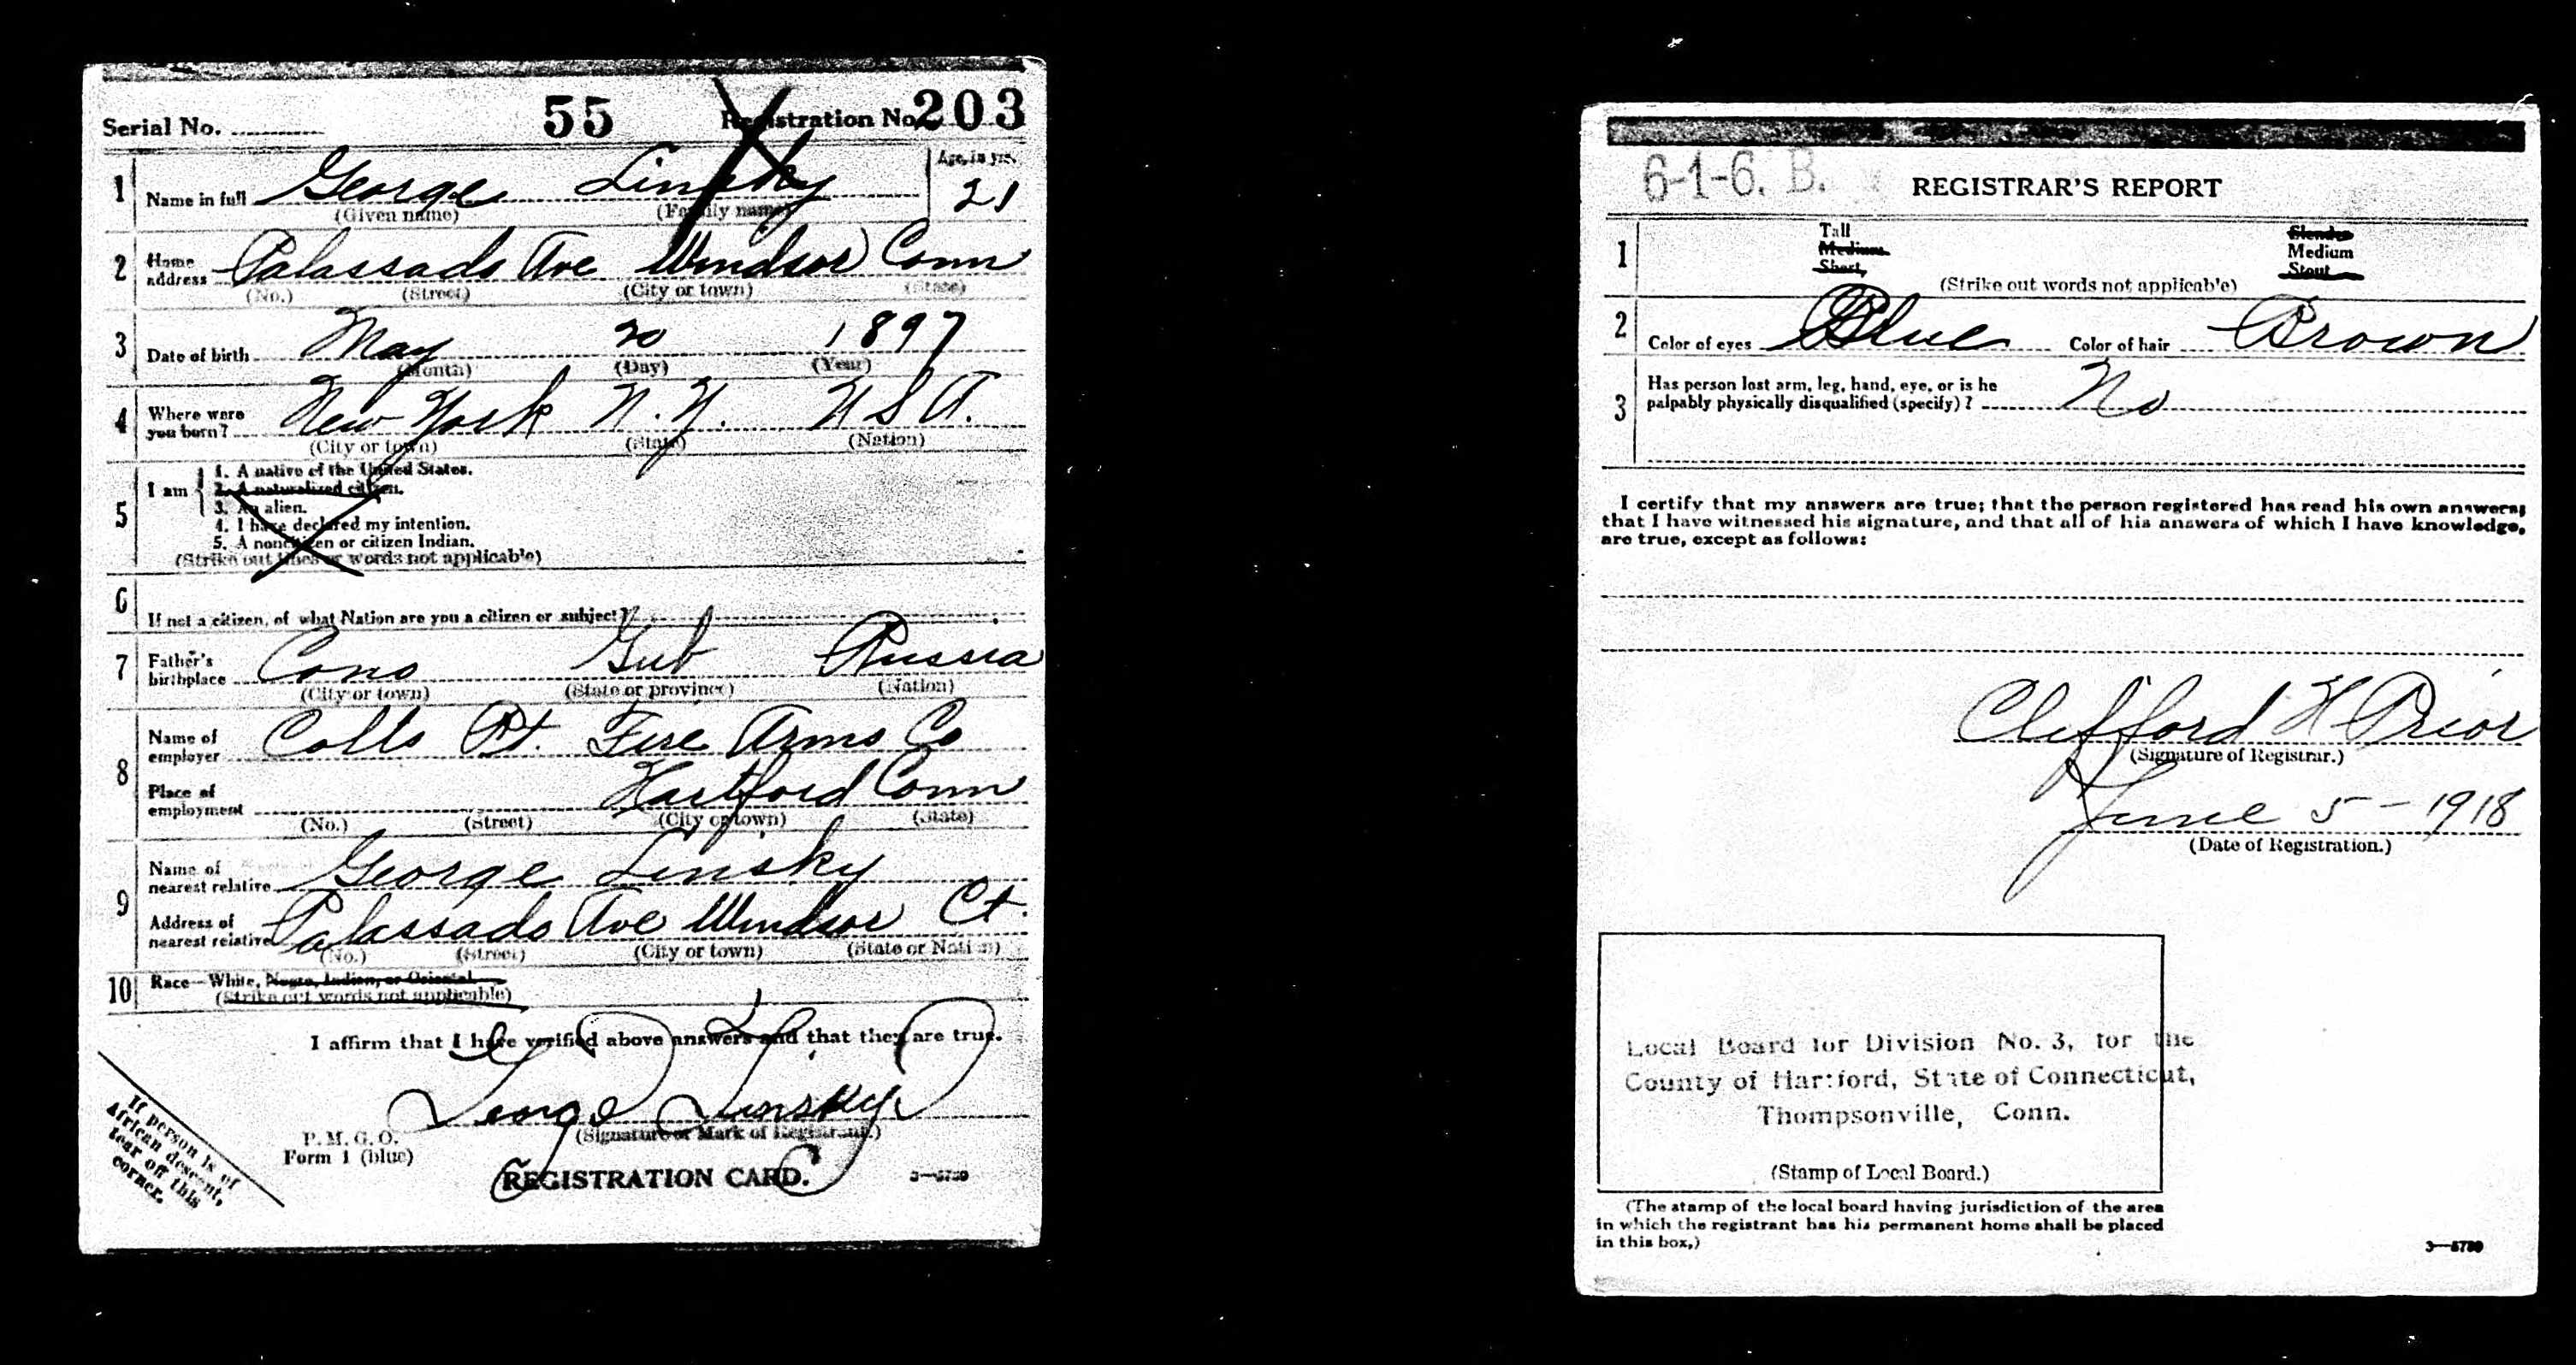 Serial No. 55 Registration No. 203
1 Name in full George Linsky Age, in yrs. 21
(Given name) (Family name)
2 Home address Palassado Ave Windsor Conn
(No.) (Street) (City or town) (State)
3 Date of birth May 20 1897
(Month) (Day) (Year)
4 Where were you born? New York N.Y. U S A.
(City or town) (State) (Nation)
5 I am 1. A native of the United States.
2. A naturalized citizen.
3. An alien.
4. I have declared my intention.
5. A noncitizen or citizen Indian.
(Strike out lines or words not applicable)
6 If not a citizen, of what Nation are you a citizen or subject?
7 Father's birthplace Cono Gub Russia
(City or town) (State or province) (Nation)
8 Name of employer Colts Pt. Fire Arms Co
Place of employment Hartford Conn
(No.) (Street) (City or town) (State)
9 Name of nearest relative George Linsky
Address of nearest relative Palassado Ave Windsor Ct.
(No.) (Street) (City or town) (State or Nation)
10 Race—White, Negro, Indian, or Oriental
(Strike out words not applicable)
I affirm that I have verified above answers and that they are true.
George Linsky
(Signature or Mark of Registrant.)
P. M. G. O.
Form 1 (blue)
REGISTRATION CARD.
If person is of
African descent,
tear off this
corner.
6-1-6. B. REGISTRAR'S REPORT
1 Tall Slender
Medium Medium
Short, Stout
(Strike out words not applicable)
2 Color of eyes Blue Color of hair Brown
3 Has person lost arm, leg, hand, eye, or is he
palpably physically disqualified (specify)? No
I certify that my answers are true; that the person registered has read his own answers;
that I have witnessed his signature, and that all of his answers of which I have knowledge,
are true, except as follows:
Clifford H Prior
(Signature of Registrar.)
June 5 - 1918
(Date of Registration.)
Local Board for Division No. 3, for the
County of Hartford, State of Connecticut,
Thompsonville, Conn.
(Stamp of Local Board.)
(The stamp of the local board having jurisdiction of the area
in which the registrant has his permanent home shall be placed
in this box.)
3—5789